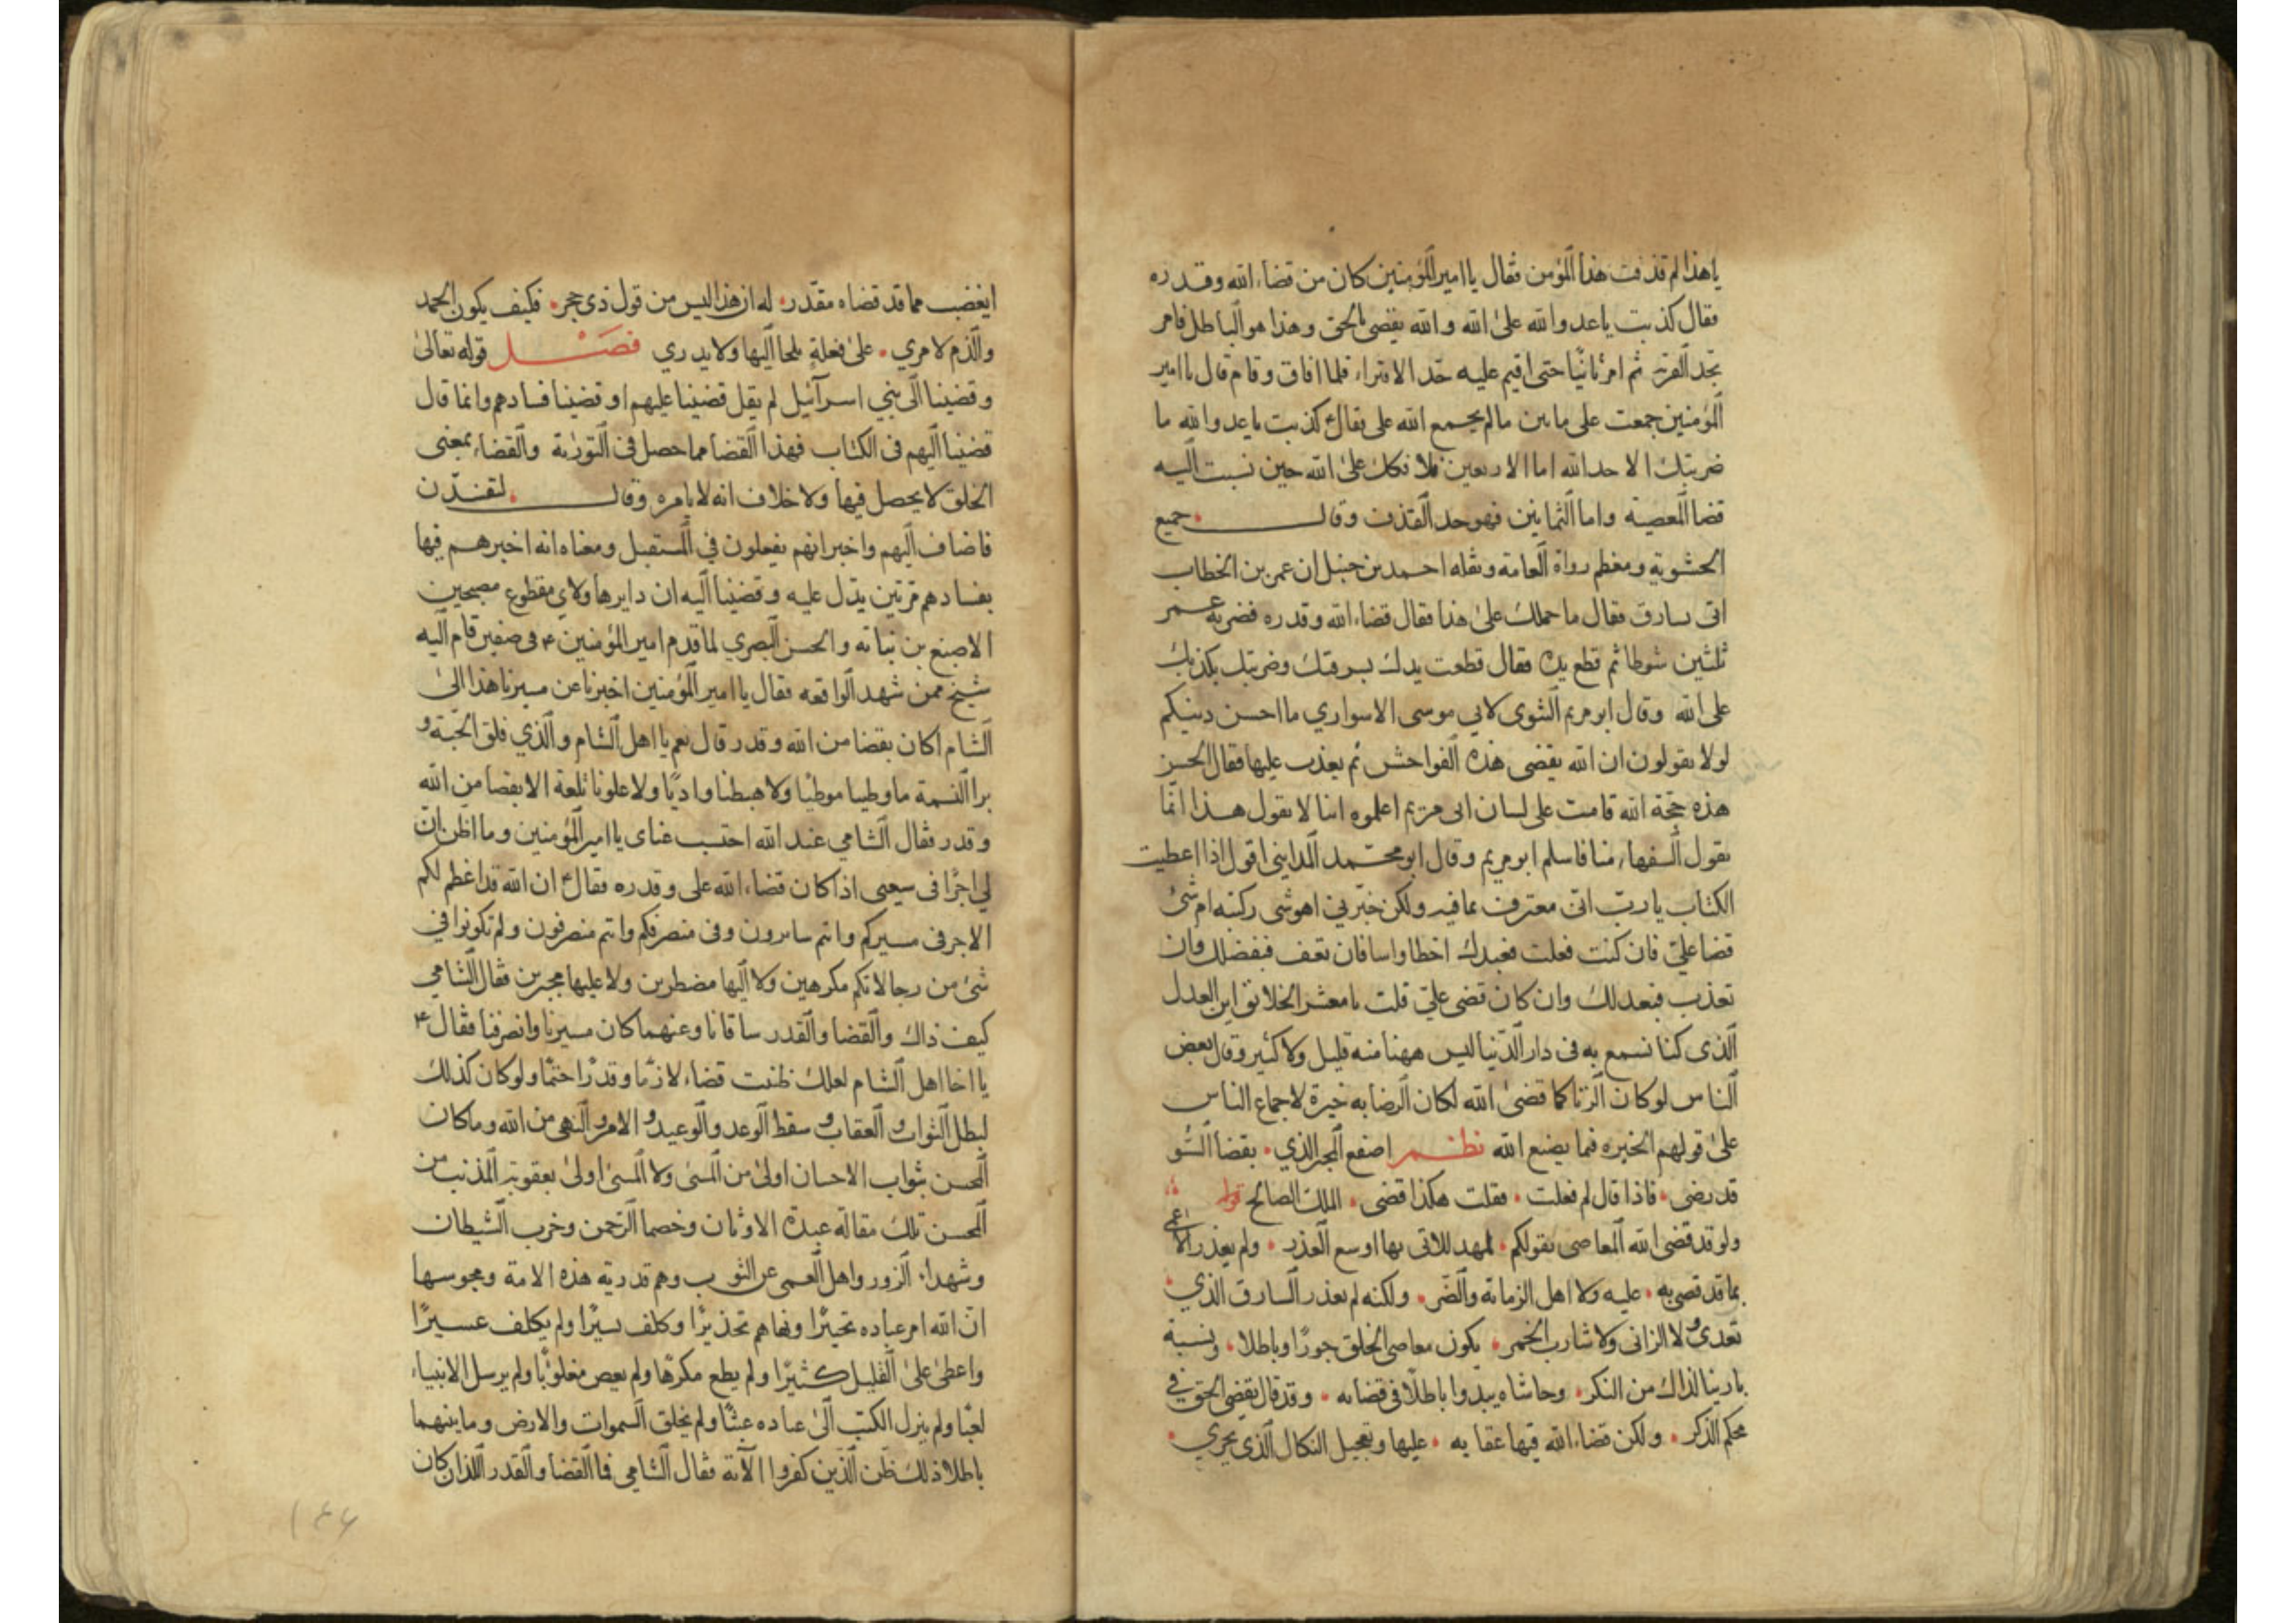 يا هذا لم قذفت هذا المؤمن فقال يا امير المؤمنين كان من قضاء الله وقدره
فقال كذبت يا عدو الله على الله والله يقضى بالحق وهذا هو الباطل فامر
ثم امر ثانيا حتى اقيم عليه حد الافتراء فلما افاق وقام قال يا امير
المؤمنين جمعت على مابين مالم يجمع الله على فقال كذبت يا عدو الله ما
ضربتك الا حد الله اما الاربعين على الله حين نسبت اليه
قضا المعصية واما الثمانين فهو حد القذف وقال جميع
الحشوية ومعظم رواة العامة ونقله احمد بن حنبل ان عمر بن الخطاب
اتى بسارق فقال ما حملك على هذا فقال قضاء الله وقدره فضربه عمر
ثلثين شوطا ثم قطع يده فقال قطعت يدك بسرقتك وضربتك بكذبك
على الله وقال ابو مريم الثنوى لابي موسى الاسواري ما احسن دينكم
لولا تقولون ان الله يقضى هذه الفواحش ثم يعذب عليها فقال الحسن
هذه حجة الله قامت على لسان ابى مريم اعلموه اننا لا نقول هذا انما
يقول السفهاء منا فاسلم ابو مريم وقال ابو محمد المداينى اقول اذا اعطيت
الكتاب يا رب انى معترف بما فيه ولكن خبرني اهو شى ركبته ام شئ
قضا على فان كنت فعلت فعبدك اخطا واسا فان تعف فبفضلك وان
تعذب فبعدلك وان كان قضى على قلت يا معشر الخلائق اين العدل
الذى كنا نسمع به فى دار الدنيا ليس ههنا منه قليل ولا كثير وقال بعض
الناس لو كان الزنا كما قضى الله لكان الرضا به خيرة لاجماع الناس
على قولهم الخيره فيما يصنع الله نظم اصفع المجبر الذي • بقضا السو
قد رضى • فاذا قال لم فعلت • فقلت هكذا قضى • الملك الصالح
ولو قد قضى الله المعاصى بقولكم • لمهد للاتى بها اوسع العذر • ولم يعذر الاعمى
بما قد قضى به • عليه ولا اهل الزمانة والضر • ولكنه لم يعذر السارق الذي •
تعدى ولا الزانى ولا شارب الخمر • يكون معاصى الخلق جورا وباطلا • ونسبة
بارينا لذاك من النكر • وحاشاه يبدوا باطلا فى قضائه • وقد قال يقضى الحق في
محكم الذكر • ولكن قضاء الله فيها عقابه • عليها وتعجيل النكال الذى يجري •
ايغضب مما قد قضاه مقدر • له ان هذا ليس من قول ذى حجر • فكيف يكون الحمد
والذم لامري • على فعلة يلجا اليها ولا يدري فصل قوله تعالى
وقضينا الى بني اسرآئيل لم يقل قضينا عليهم او قضينا فسادهم وانما قال
قضينا اليهم فى الكتاب فهذا القضا مما حصل فى التورىة والقضاء بمعنى
الخلق لا يحصل فيها ولا خلاف انه لا يامره وقال • لتفسدن
فاضاف اليهم واخبر انهم يفعلون في المستقبل ومعناه انه اخبرهم فيها
بفسادهم مرتين يدل عليه وقضينا اليه ان دابر هاولاي مقطوع مصبحين
الاصبغ بن نباته والحسن البصري لما قدم امير المؤمنين ع فى صفين قام اليه
شيخ ممن شهد الواقعه فقال يا امير المؤمنين اخبرنا عن مسيرنا هذا الى
الشام اكان بقضا من الله وقدر قال نعم يا اهل الشام والذي فلق الحبة و
برا النسمة ما وطينا موطئا ولا هبطنا واديا ولا علونا تلعة الا بقضا من الله
وقدر فقال الشامي عند الله احتسب عناى يا امير المؤمنين وما اظن ان
لي اجرا فى سعيى اذا كان قضاء الله على وقدره فقال ع ان الله قد اعظم لكم
الاجر فى مسيركم وانتم سايرون وفى منصرفكم وانتم منصرفون ولم تكونوا في
شئ من رجالاتكم مكرهين ولا اليها مضطرين ولا عليها مجبرين فقال الشامي
كيف ذاك والقضا والقدر ساقانا وعنهما كان مسيرنا وانصرفنا فقال ع
يا اخا اهل الشام لعلك ظننت قضاء لازما وقدرا حتما ولو كان كذلك
لبطل الثواب والعقاب وسقط الوعد والوعيد والامر والنهى من الله وما كان
المحسن بثواب الاحسان اولى من المسئ ولا المسئ اولى بعقوبة المذنب من
المحسن تلك مقالة عبدة الاوثان وخصما الرحمن وحزب الشيطان
وشهداء الزور واهل العمى عن وهم قدرية هذه الامة ومجوسها
ان الله امر عباده تخييرا ونهاهم تحذيرا وكلف يسيرا ولم يكلف عسيرا
واعطى على القليل كثيرا ولم يطع مكرها ولم يعص مغلوبا ولم يرسل الانبياء
لعبا ولم ينزل الكتب الى عباده عبثا ولم يخلق السموات والارض وما بينهما
باطلا ذلك ظن الذين كفروا الآية فقال الشامي فما القضا والقدر اللذان كان